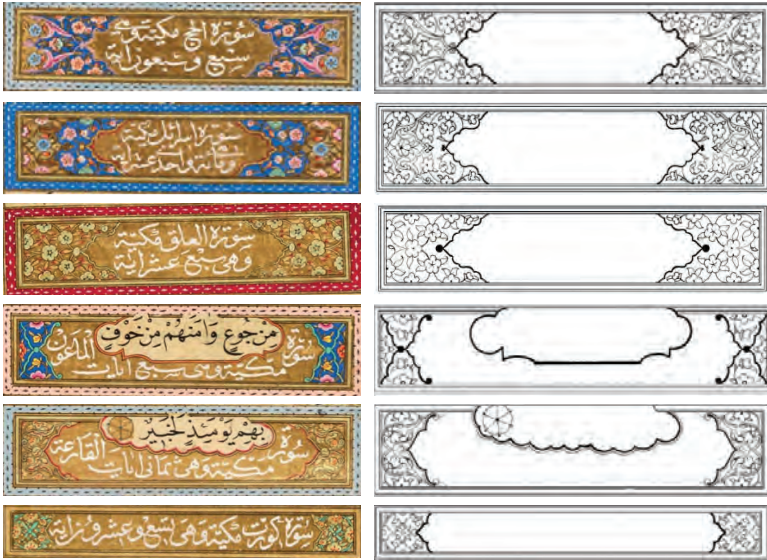 سورة الحج مكية وهى
سبع وسبعون اية
سورة اسرائيل مكية
مائة واحد عشر اية
سورة العلق مكية
وهى سبع عشر اية
مِنْ جُوعٍ وَاٰمَنَهُمْ مِنْ خَوْفٍ
سورة الماعون
مكية وهى سبع ايات
بِهِمْ يَوْمَئِذٍ لَخَبِيرٌ
سورة القارعة
مكية وهى ثمانى ايات
سورة كورت مكية وهى تسع وعشرون اية